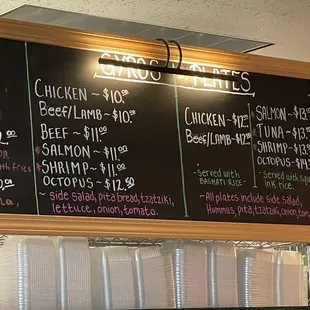 GYROS PLATES
Chicken ~ $10.00
Beef/Lamb ~ $10.00
Beef ~ $11.00
Salmon ~ $11.00
Shrimp ~ $11.00
Octopus ~ $12.50
~ side salad, pita bread, tzatziki,
lettuce, onion, tomato.
Chicken ~ $12.
Beef/Lamb ~ $12.
~ served with
Basmati rice ~
Salmon ~ $13.
Tuna ~ $13.
Shrimp ~ $13.
Octopus ~ $14.
served with squid
ink rice.
~ All plates include side salad,
Hummus, pita, tzatziki, onion, tom